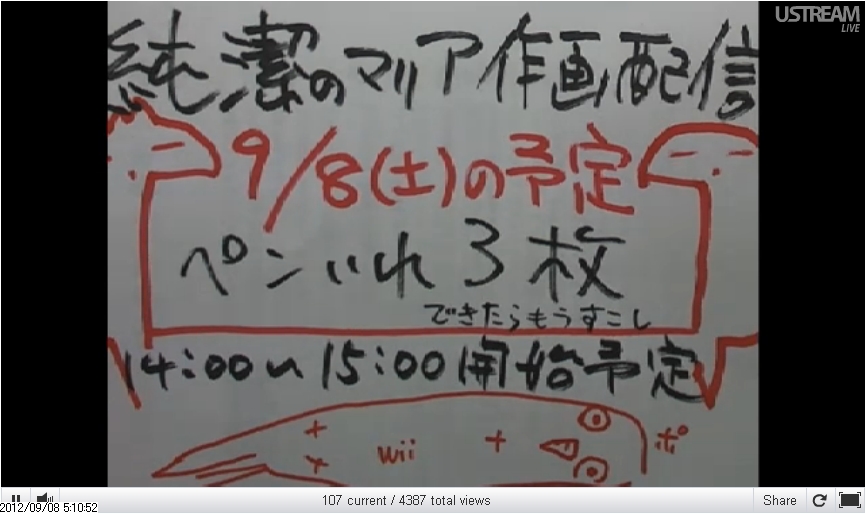 USTREAM
LIVE
純潔のマリア作画配信
9/8(土)の予定
ペンいれ3枚
できたらもうすこし
14:00〜15:00開始予定
wii
ポ
107 current / 4387 total views
Share
2012/09/08 5:10:52